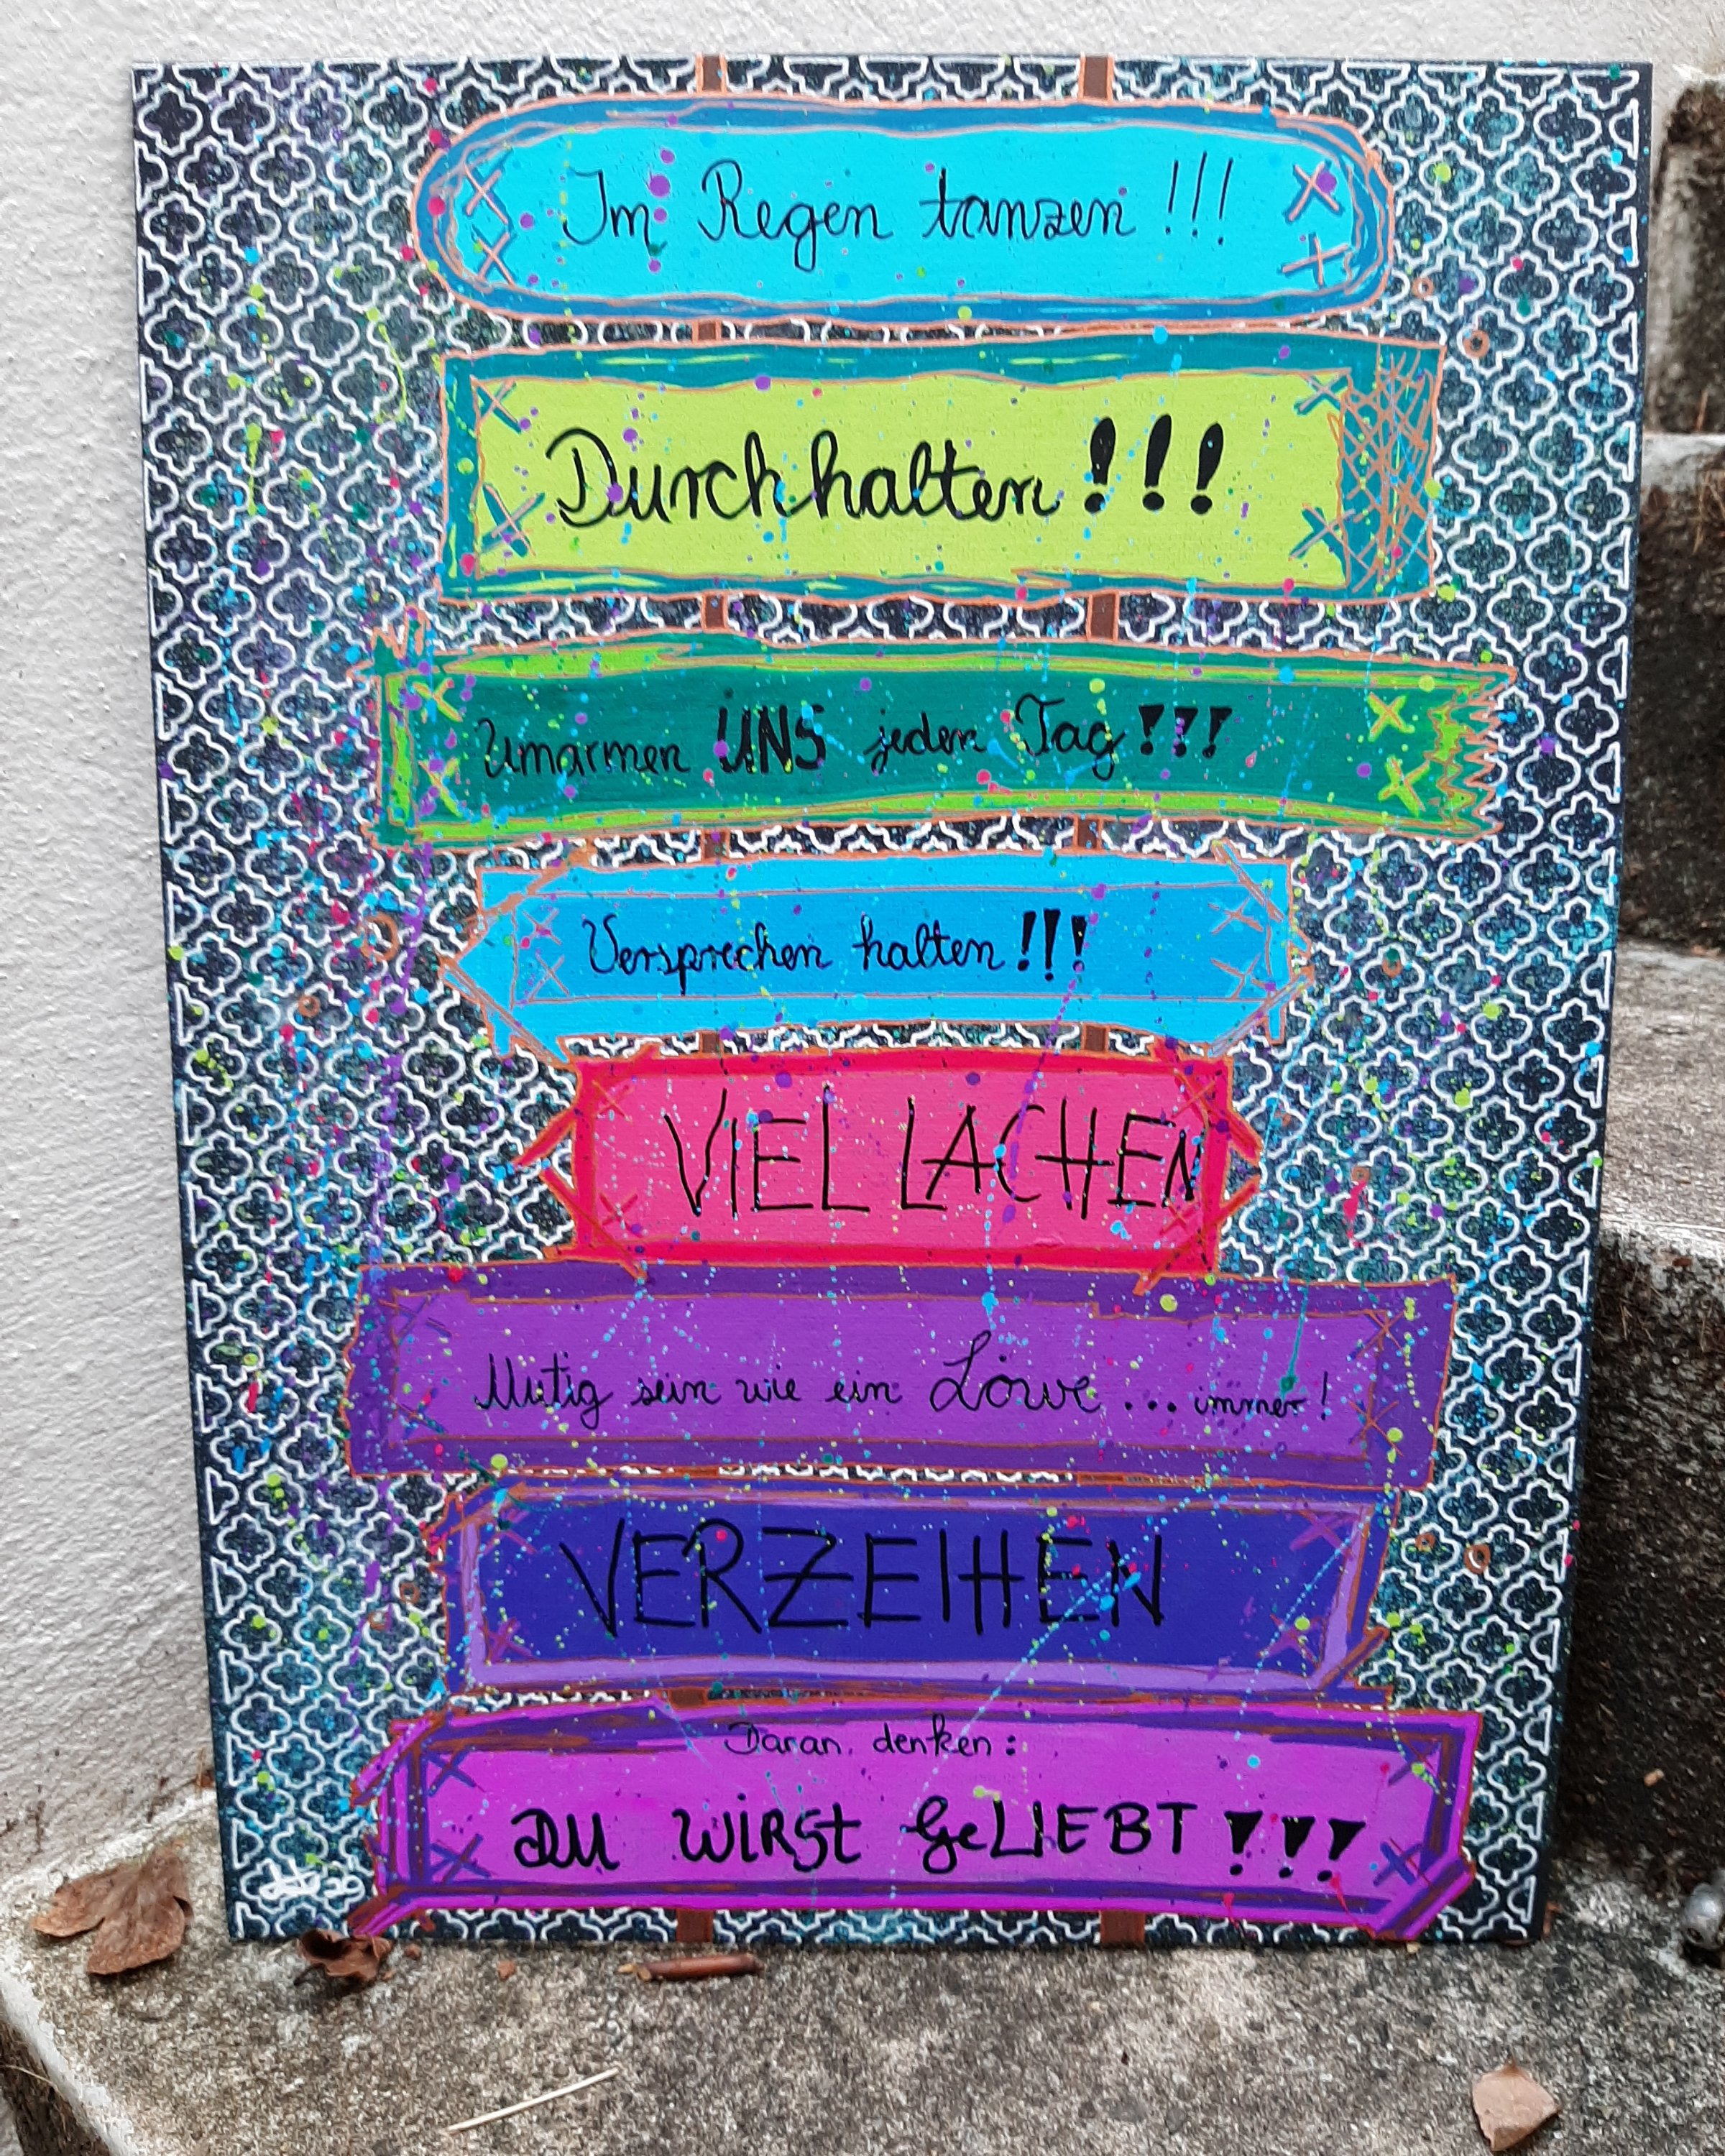 Im Regen tanzen !!!
Durchhalten !!!
Umarmen UNS jeden Tag !!!
Versprechen halten !!!
VIEL LACHEN
Mutig sein wie ein Löwe ... immer !
VERZEIHEN
Daran denken :
DU WIRSt GeLIEBT !!!